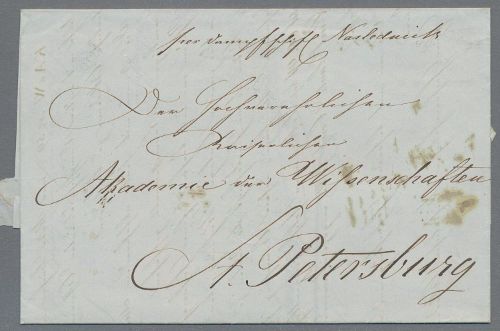 per Dampfschiff Naslednick
Der Hochverehrlichen
Kaiserlichen
Akademie der Wissenschaften
St. Petersburg